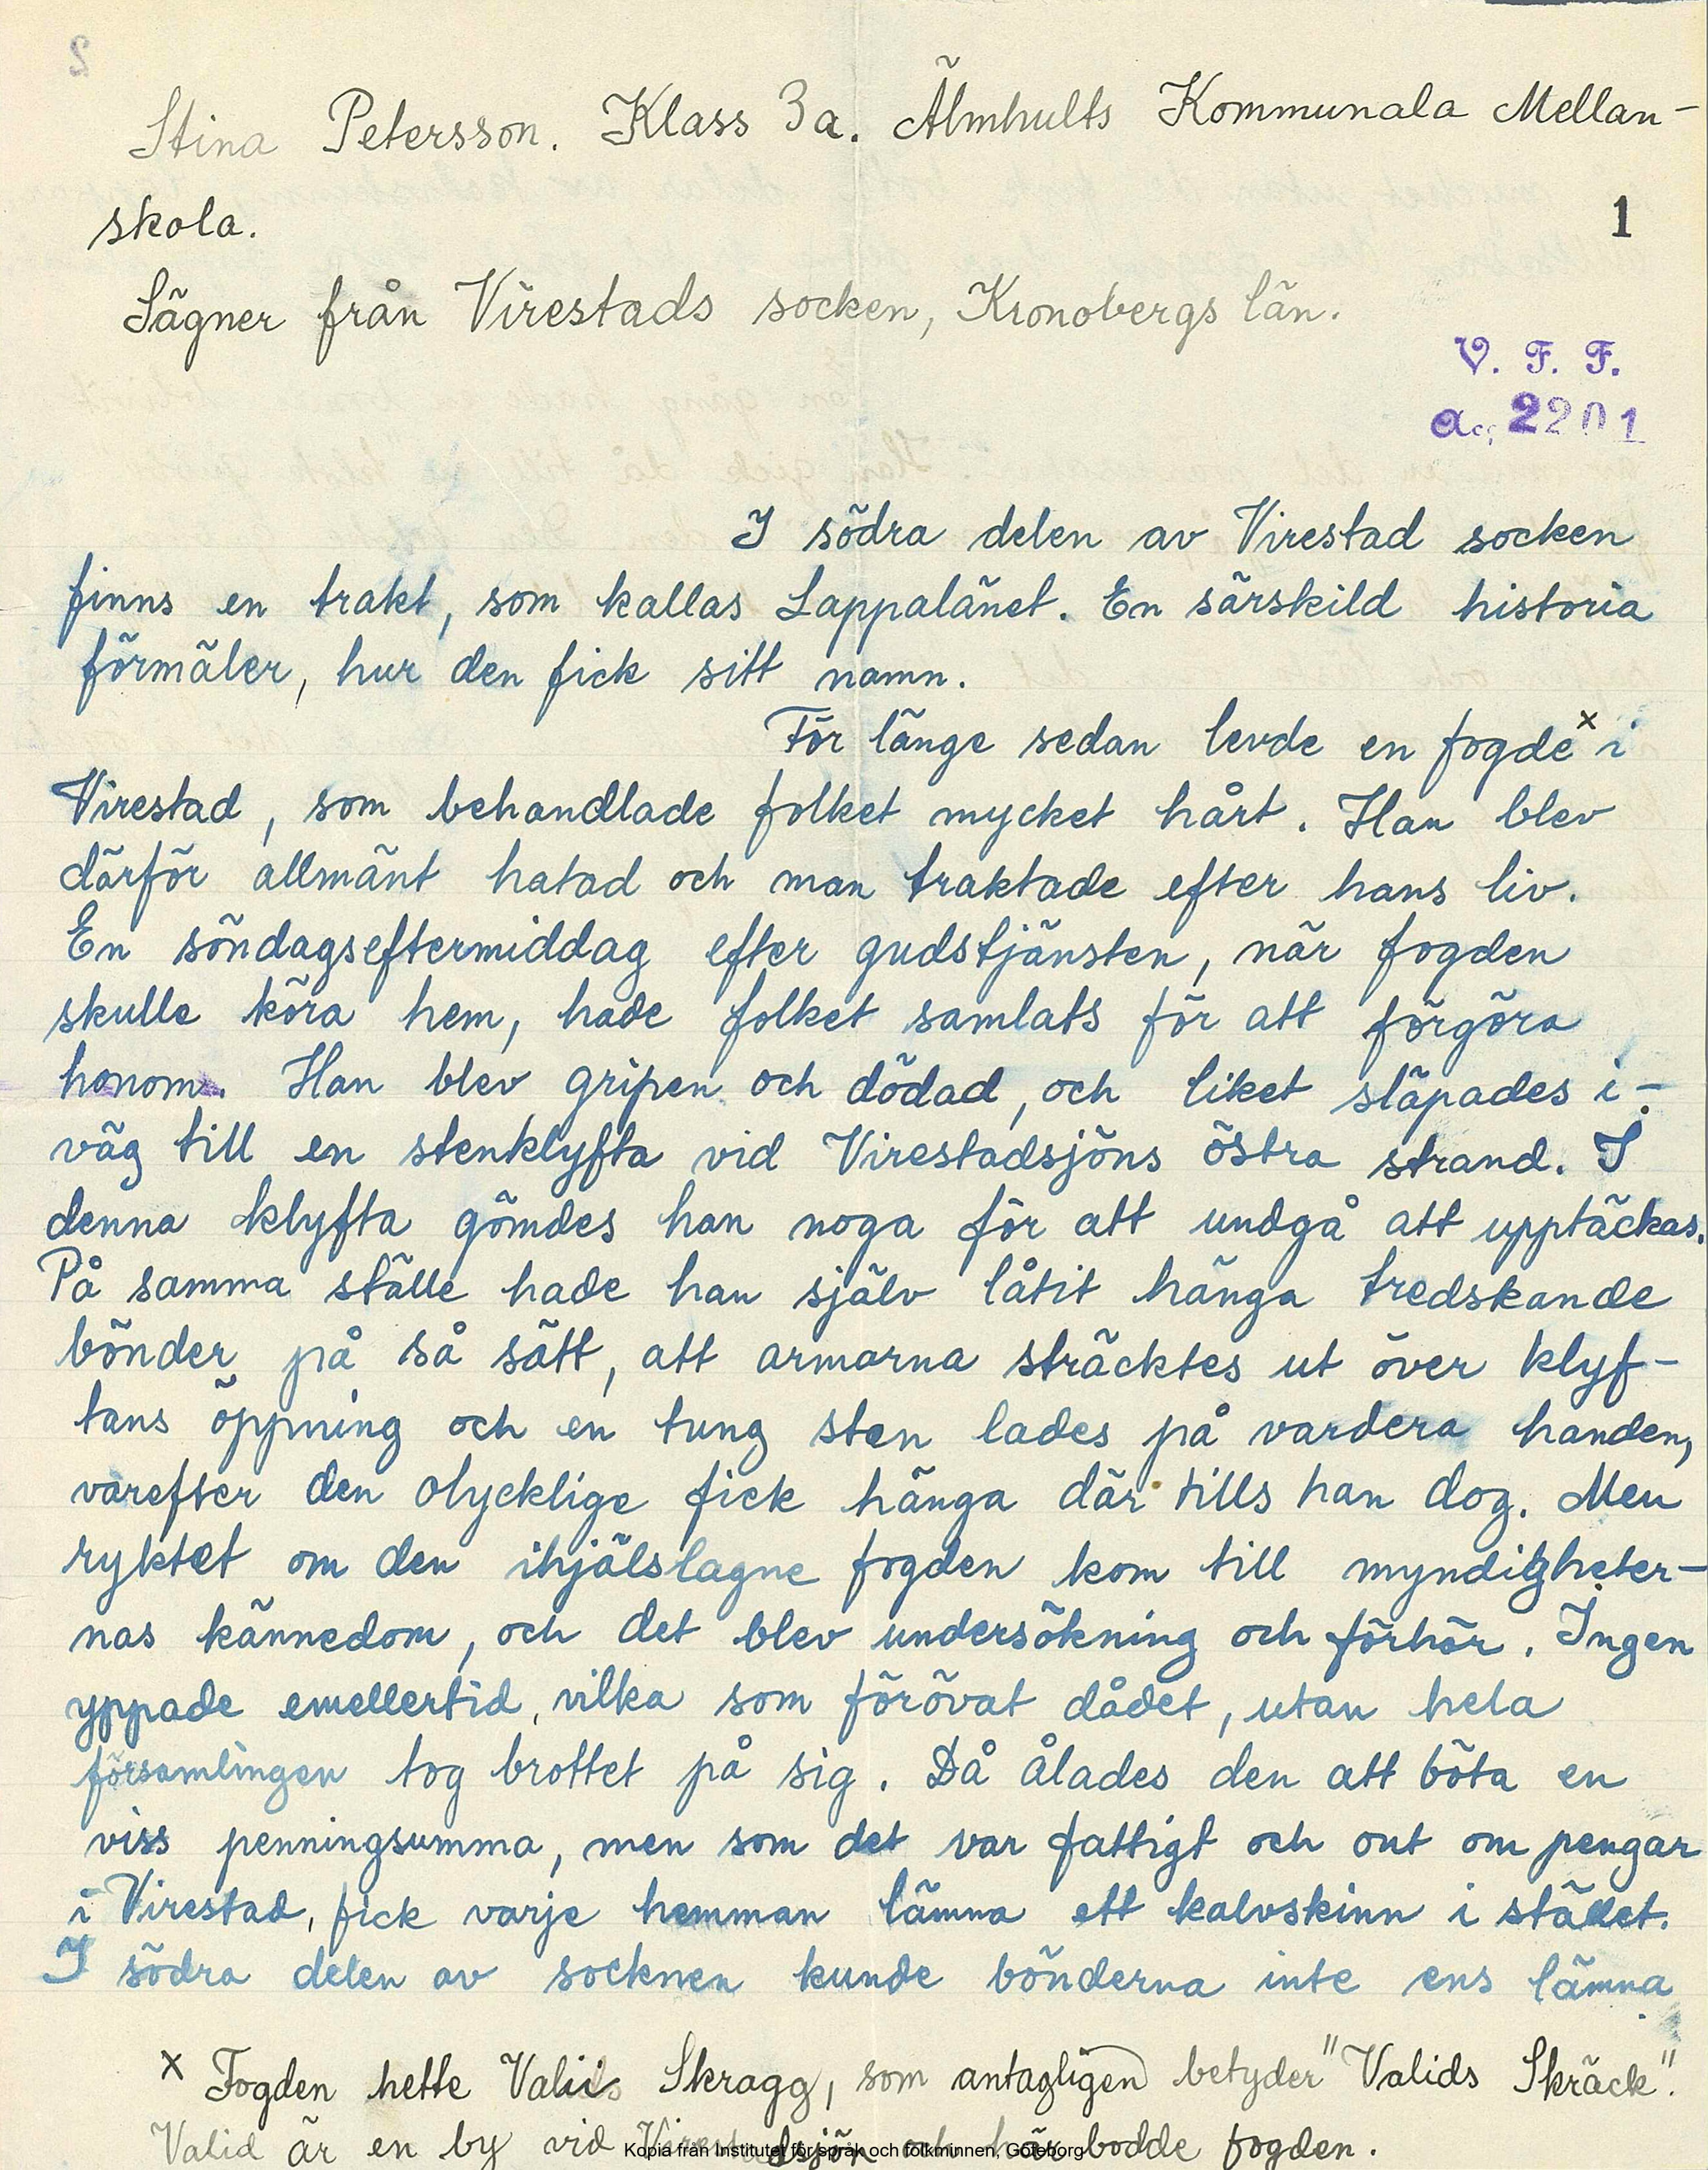 2
Stina Petersson. Klass 3a. Älmhults Kommunala Mellan-
skola.
1
Sägner från Virestads socken, Kronobergs län.
V. F. F.
ac, 2201
I södra delen av Virestad socken
finns en trakt, som kallas Lappalänet. En särskild historia
förmäler, hur den fick sitt namn.
För länge sedan levde en fogde x i
Virestad, som behandlade folket mycket hårt. Han blev
därför allmänt hatad och man traktade efter hans liv.
En söndagseftermiddag efter gudstjänsten, när fogden
skulle köra hem, hade folket samlats för att förgöra
honom. Han blev gripen och dödad, och liket släpades i-
väg till en stenklyfta vid Virestadsjöns östra strand. I
denna klyfta gömdes han noga för att undgå att upptäckas.
På samma ställe hade han själv låtit hänga tredskande
bönder på så sätt, att armarna sträcktes ut över klyf-
tans öppning och en tung sten lades på vardera handen,
varefter den olycklige fick hänga där tills han dog. Men
ryktet om den ihjälslagne fogden kom till myndigheter-
nas kännedom, och det blev undersökning och förhör. Ingen
yppade emellertid, vilka som förövat dådet, utan hela
församlingen tog brottet på sig. Då ålades den att böta en
viss penningsumma, men som det var fattigt och ont om pengar
i Virestad, fick varje hemman lämna ett kalvskinn i stället.
I södra delen av socknen kunde bönderna inte ens lämna
x Fogden hette Valids Skragg, som antagligen betyder "Valids Skräck".
Valid är en by vid Virestadsjön och här bodde fogden.
Kopia från Institutet för språk och folkminnen, Göteborg